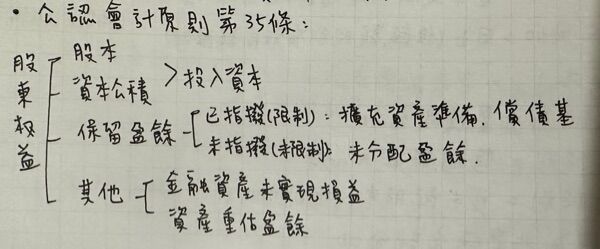 • 公認會計原則第35條:
股東權益
股本
資本公積 > 投入資本
保留盈餘
已指撥(限制): 擴充資產準備、償債基
未指撥(未限制): 未分配盈餘.
其他
金融資產未實現損益
資產重估盈餘